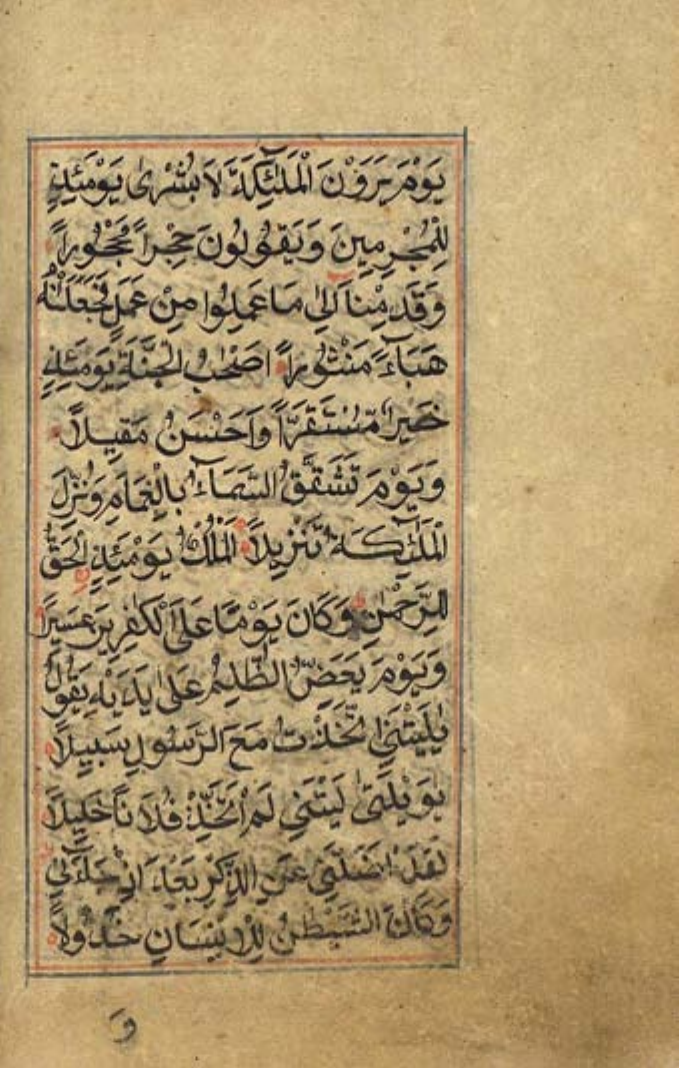 يَوْمَ يَرَوْنَ الْمَلٰئِكَةَ لَا بُشْرٰى يَوْمَئِذٍ
لِلْمُجْرِمِينَ وَيَقُولُونَ حِجْراً مَحْجُوراً
وَقَدِمْنَا اِلٰى مَا عَمِلُوا مِنْ عَمَلٍ فَجَعَلْنٰهُ
هَبَاءً مَنْثُوراً اَصْحٰبُ الْجَنَّةِ يَوْمَئِذٍ
خَيْرٌ مُسْتَقَرّاً وَاَحْسَنُ مَقِيلاً
وَيَوْمَ تَشَقَّقُ السَّمَاءُ بِالْغَمَامِ وَنُزِّلَ
الْمَلٰئِكَةُ تَنْزِيلاً اَلْمُلْكُ يَوْمَئِذٍ الْحَقُّ
لِلرَّحْمٰنِ وَكَانَ يَوْمًا عَلَى الْكٰفِرِينَ عَسِيرًا
وَيَوْمَ يَعَضُّ الظَّالِمُ عَلٰى يَدَيْهِ يَقُولُ
يٰلَيْتَنِي اتَّخَذْتُ مَعَ الرَّسُولِ سَبِيلاً
يٰوَيْلَتٰى لَيْتَنِي لَمْ اَتَّخِذْ فُلَاناً خَلِيلاً
لَقَدْ اَضَلَّنِي عَنِ الذِّكْرِ بَعْدَ اِذْ جَاءَنِي
وَكَانَ الشَّيْطٰنُ لِلْاِنْسَانِ خَذُولاً
وَ